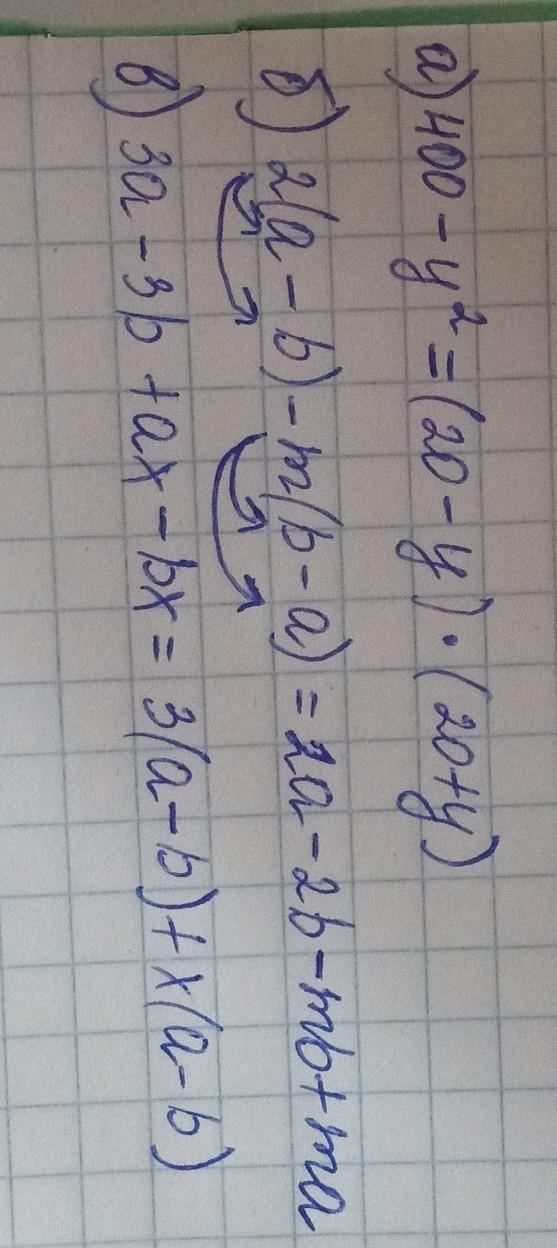 а) 400 - y² = (20 - y) · (20 + y)
б) 2(a - b) - m(b - a) = 2a - 2b - mb + ma
в) 3a - 3b + ax - bx = 3(a - b) + x(a - b)